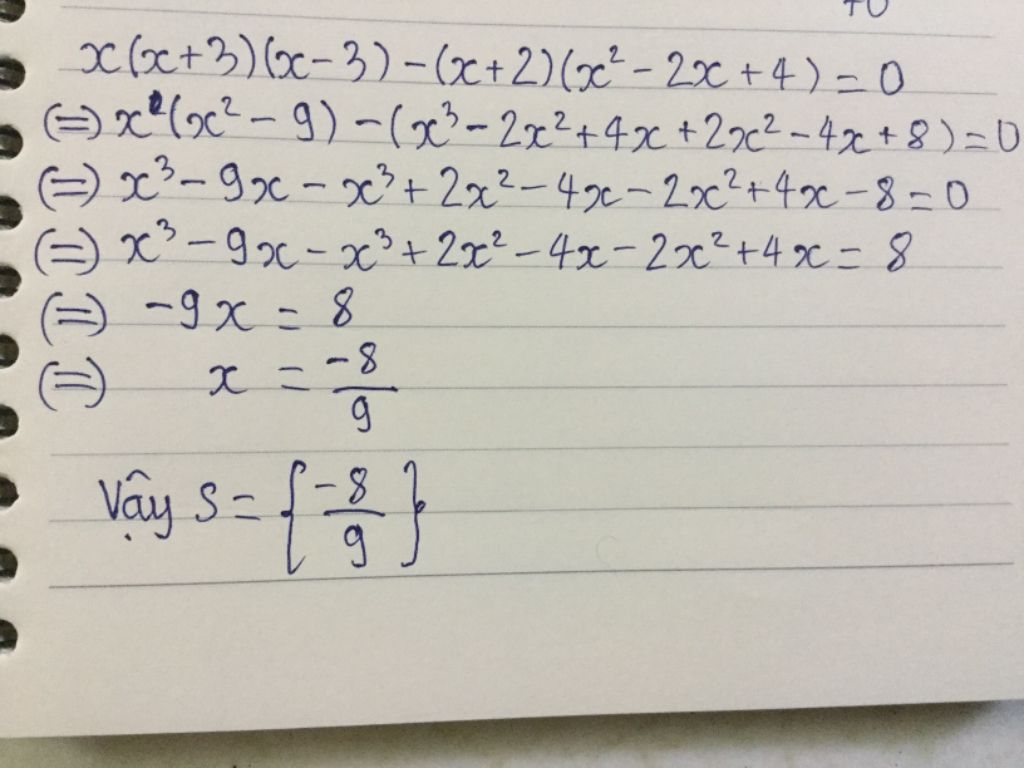 x(x+3)(x-3)-(x+2)(x²-2x+4)=0
(=) x(x²-9)-(x³-2x²+4x+2x²-4x+8)=0
(=) x³-9x-x³+2x²-4x-2x²+4x-8=0
(=) x³-9x-x³+2x²-4x-2x²+4x=8
(=) -9x = 8
(=) x = -8/9
Vậy S = {-8/9}